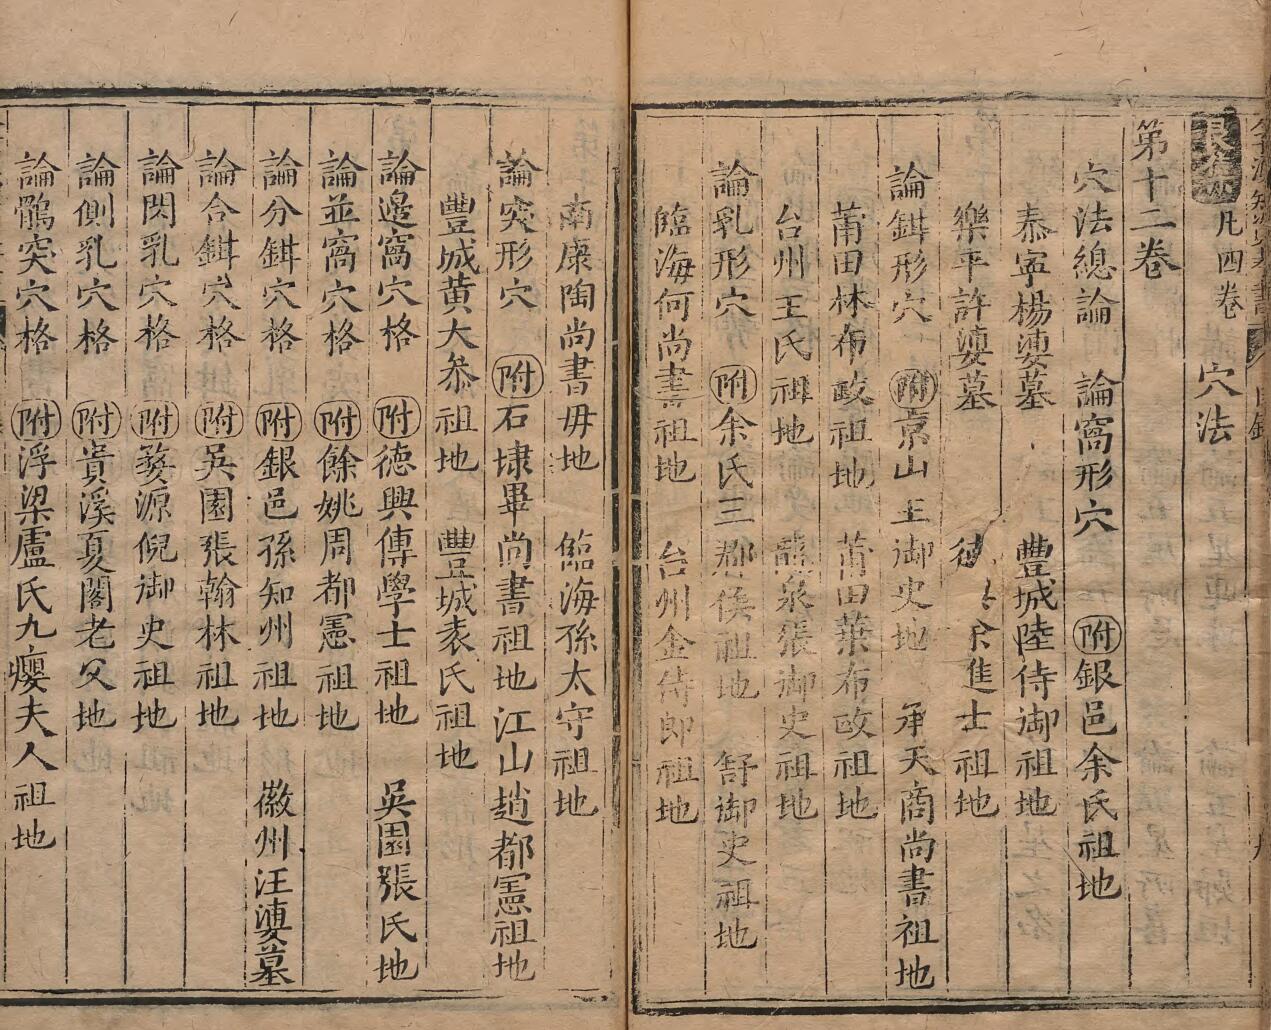 凡四卷 穴法
第十二卷
穴法總論 論窩形穴 附銀邑余氏祖地
泰寧楊㛐墓 豐城陸侍御祖地
樂平許㛐墓 余進士祖地
論鉗形穴 附京山王御史地 承天商尚書祖地
莆田林布政祖地 莆田葉布政祖地
台州王氏祖地 張御史祖地
論乳形穴 附余氏三郡侯祖地 舒御史祖地
臨海何尚書祖地 台州金侍郎祖地
南康陶尚書毋地 臨海孫太守祖地
論突形穴 附石埭畢尚書祖地 江山趙都憲祖地
豐城黄大叅祖地 豐城袁氏祖地
論邊窩穴格 附德興傅學士祖地 吳園張氏地
論並窩穴格 附餘姚周都憲祖地
論分鉗穴格 附銀邑孫知州祖地 徽州汪㛐墓
論合鉗穴格 附吳園張翰林祖地
論閃乳穴格 附婺源倪御史祖地
論側乳穴格 附貴溪夏閣老父地
論鶻突穴格 附浮梁盧氏九癭夫人祖地